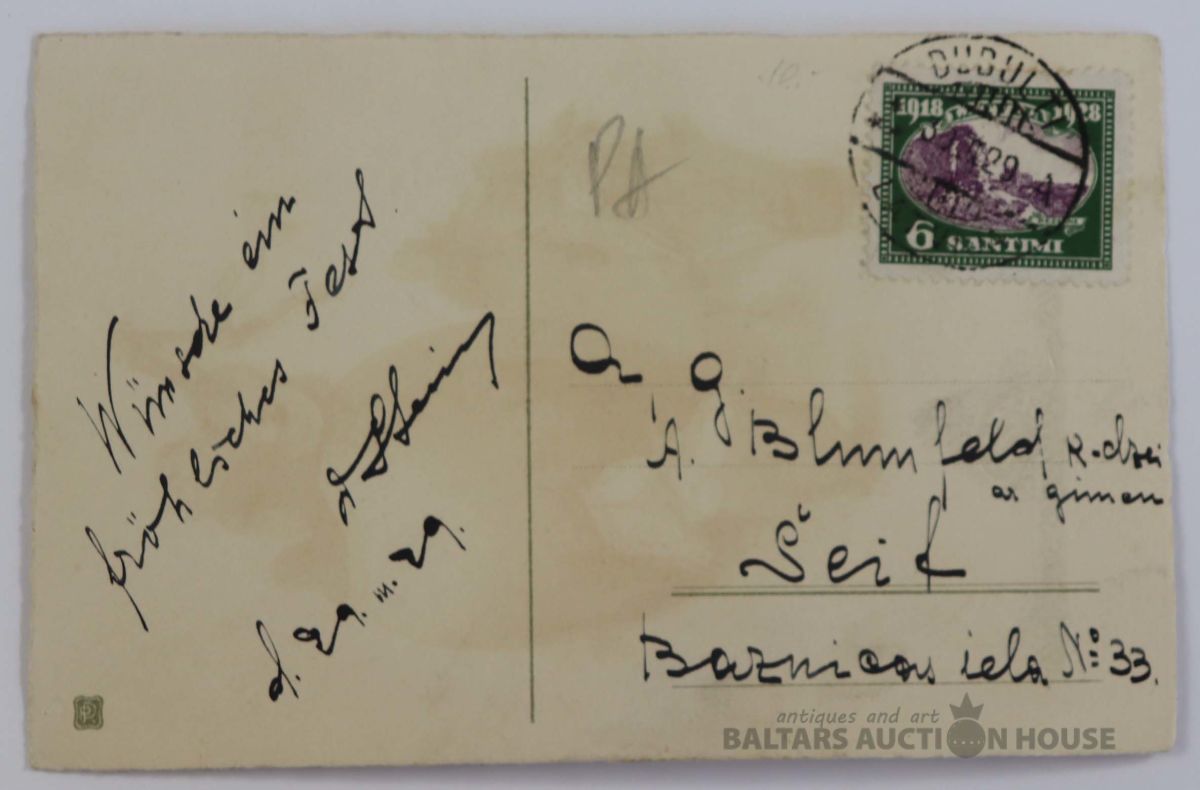 Wünsche ein
fröhliches Fest
d. 29. III. 29.
PA
DUBULTI
1918 LATVIJA 1928
29
6 SANTIMI
A. G.
A. Blumfeld k-dzei
ar gimen
Šeit
Baznicas iela № 33.
antiques and art
BALTARS AUCTION HOUSE